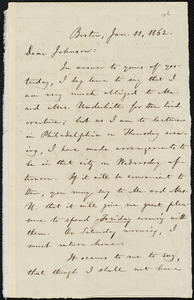 Boston, Jan. 11, 1862.
Dear Johnson:
In answer to yours of yes-
terday, I beg leave to say that I
am very much obliged to Mr.
and Mrs. Underhill for the kind
invitation; but as I am to lecture
in Philadelphia on Thursday even-
ing, I have made arrangements to
be in that city on Wednesday af-
ternoon. If it will be convenient to
them, you may say to Mr. and Mrs.
U. that it will give me great plea-
sure to spend Friday evening with
them. On Saturday morning, I
must return home.
It occurs to me to say,
that though I shall not have